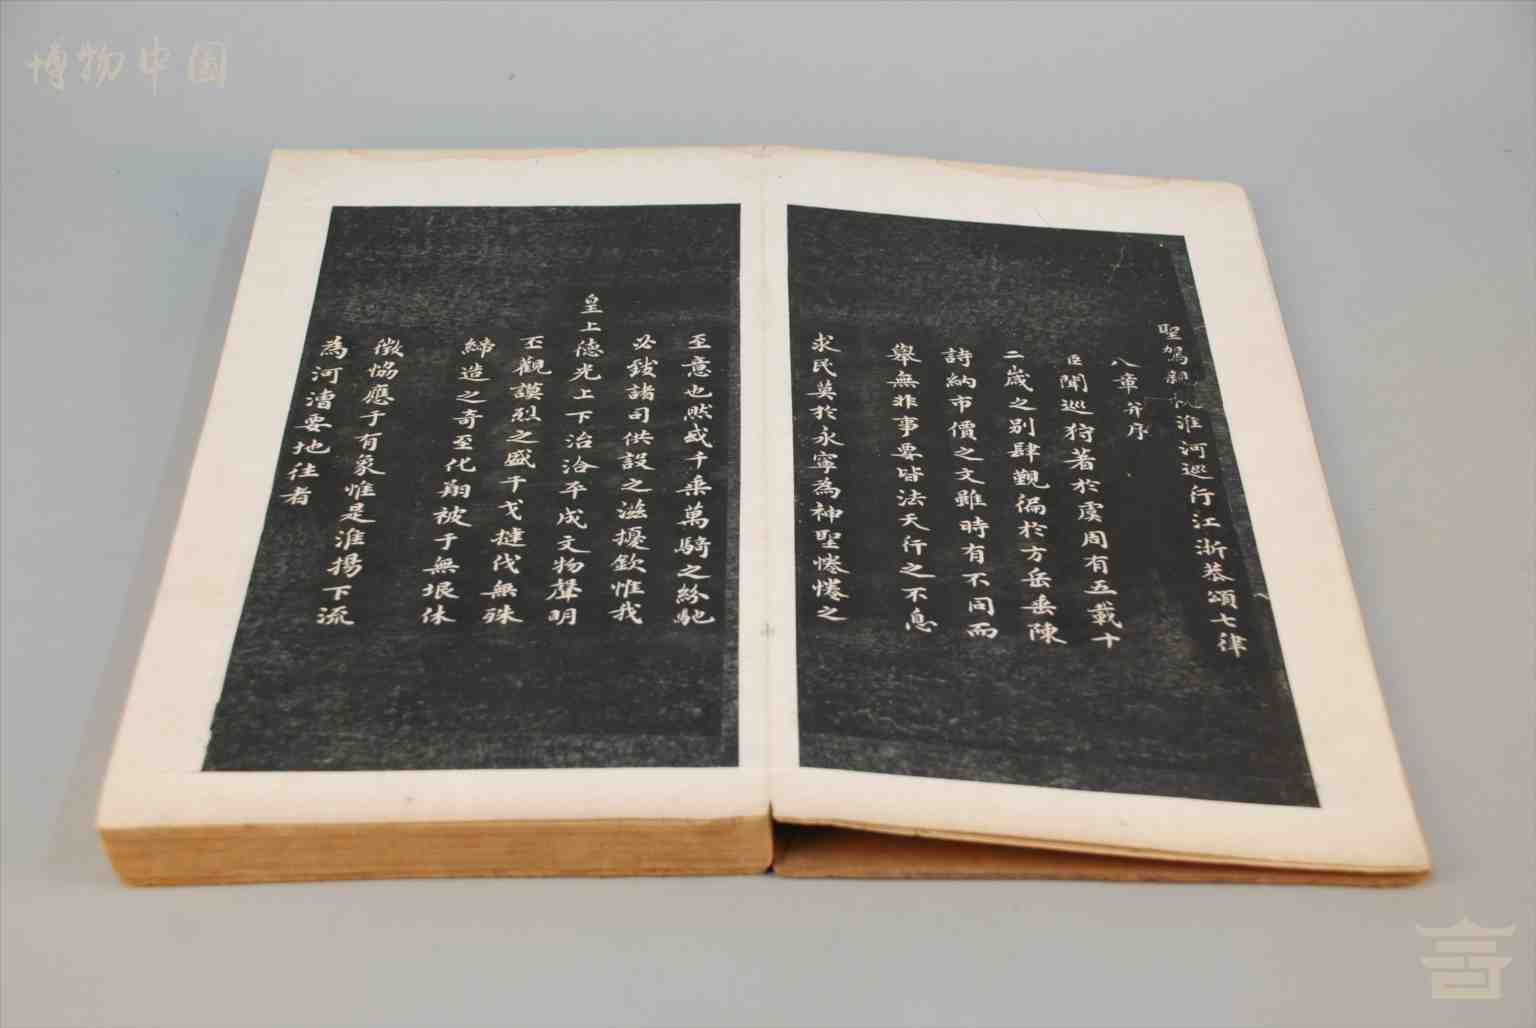 博物中国
聖駕親視淮河巡行江浙恭頌七律
八章并序
臣聞巡狩著於虞周有五載十
二歲之別肆覲徧於方岳垂陳
詩納市價之文雖時有不同而
舉無非事要皆法天行之不息
求民莫於永寧為神聖惓惓之
至意也然或千乘萬騎之紛馳
必錢諸司供設之滋擾欽惟我
皇上德光上下治洽平成文物聲明
丕觀謨烈之盛干戈撻伐無殊
締造之奇至化翔被于無垠休
徵恊應于有象惟是淮揚下流
為河漕要地往者